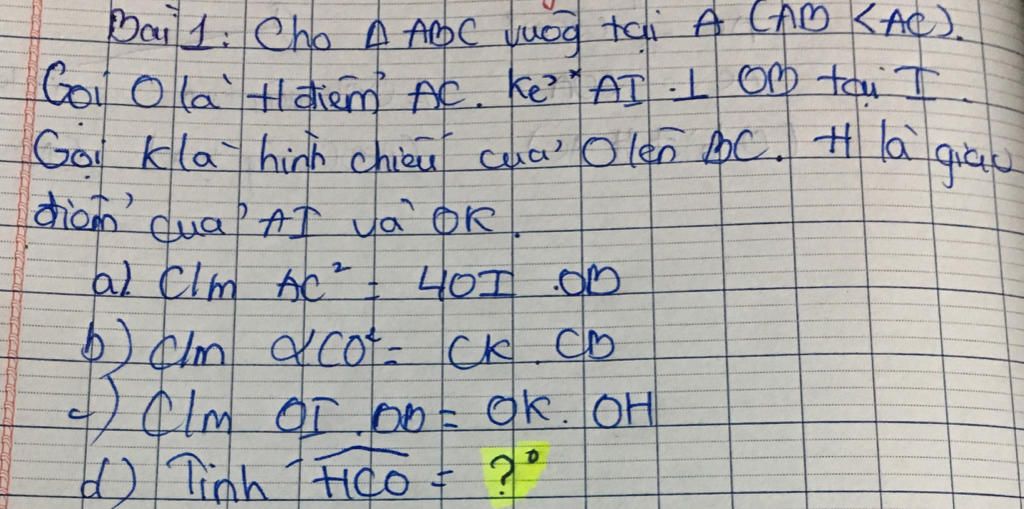 Bài 1: Cho Δ ABC vuôg tại A (AB < AC).
Gọi O là t/điểm AC. Kẻ AI ⊥ OB tại I.
Gọi K là hình chiếu của O lên BC. H là giao
điểm của AI và OK.
a) C/m AC² = 4OI . OB
b) C/m 2CO² = CK . CB
c) C/m OI . OB = OK . OH
d) Tính HCO = ?°